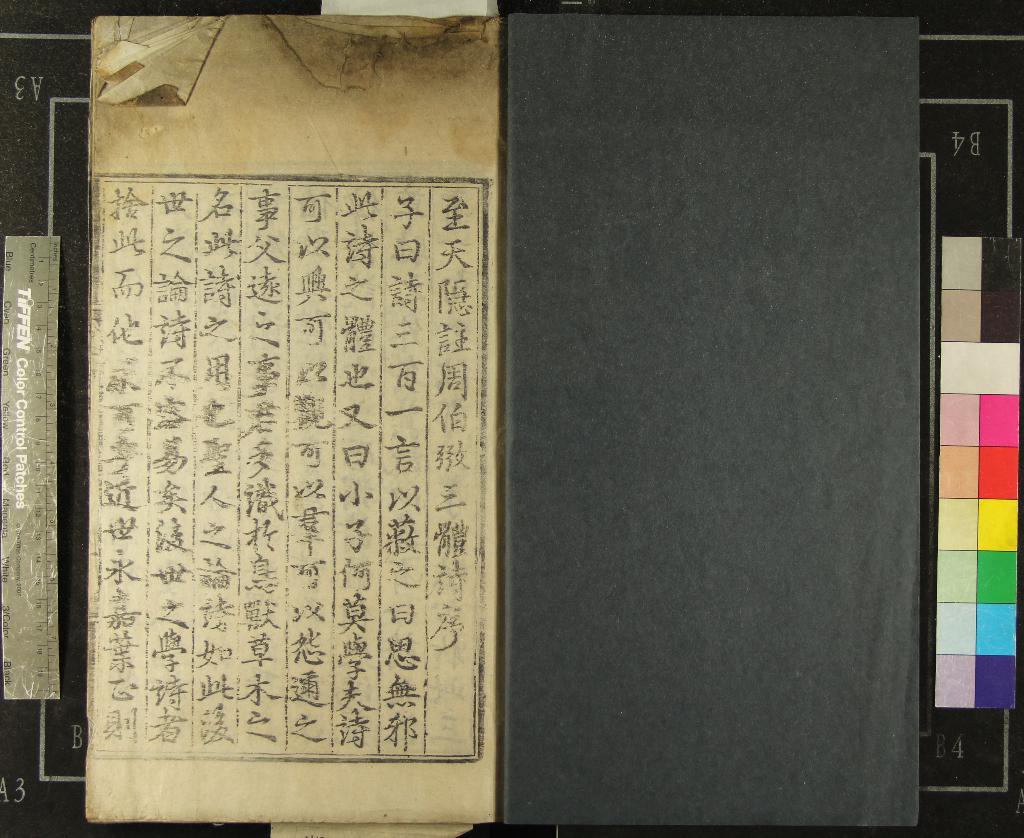 至天隱註周伯弜三體詩序
子曰詩三百一言以蔽之曰思無邪
此詩之體也又曰小子何莫學夫詩
可以興可以觀可以羣可以怨邇之
事父遠之事君多識於鳥獸草木之
名此詩之用也聖人之論詩如此後
世之論詩不容易矣後世之學詩者
捨此而他求可乎近世永嘉葉正則
A3
B4
B4
A3
B
TIFFEN Color Control Patches
Centimetres
Blue Cyan Green Yellow Red Magenta White 3/Color Black